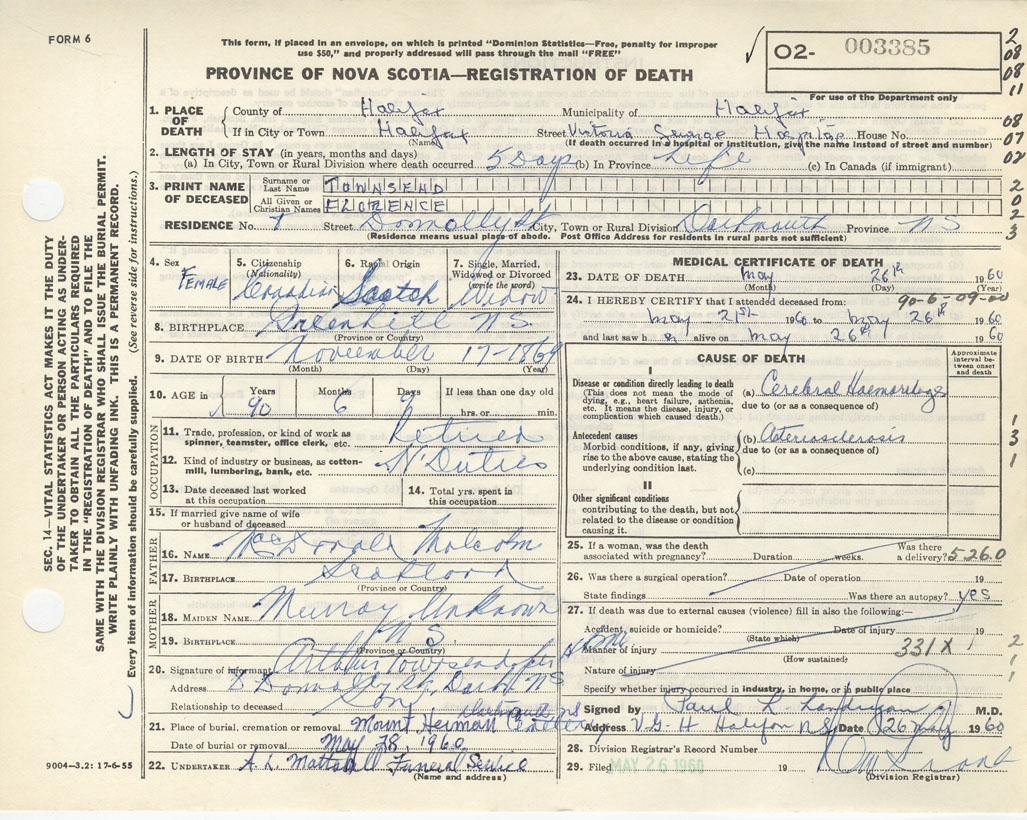 FORM 6
This form, if placed in an envelope, on which is printed "Dominion Statistics—Free, penalty for improper
use $50," and properly addressed will pass through the mail "FREE"
PROVINCE OF NOVA SCOTIA—REGISTRATION OF DEATH
O2- 003385
For use of the Department only
2
08
08
11
08
07
02
2
0
2
3
1. PLACE OF DEATH
County of Halifax Municipality of Halifax
If in City or Town Halifax Street Victoria General Hospital House No.
(Name) (If death occurred in a hospital or institution, give the name instead of street and number)
2. LENGTH OF STAY (in years, months and days)
(a) In City, Town or Rural Division where death occurred 5 Days (b) In Province Life (c) In Canada (if immigrant)
3. PRINT NAME OF DECEASED
Surname or Last Name TOWNSEND
All Given or Christian Names FLORENCE
RESIDENCE No. Street St City, Town or Rural Division Dartmouth Province NS
(Residence means usual place of abode. Post Office Address for residents in rural parts not sufficient)
4. Sex Female
5. Citizenship (Nationality) Canadian
6. Racial Origin Scotch
7. Single, Married, Widowed or Divorced (write the word) Widow
8. BIRTHPLACE Greenhill N.S.
(Province or Country)
9. DATE OF BIRTH November 17-1869
(Month) (Day) (Year)
10. AGE in Years 90 Months 6 Days If less than one day hrs. or min.
OCCUPATION
11. Trade, profession, or kind of work as spinner, teamster, office clerk, etc. Retired
12. Kind of industry or business, as cotton-mill, lumbering, bank, etc. H Duties
13. Date deceased last worked at this occupation
14. Total yrs. spent in this occupation
15. If married give name of wife or husband of deceased
FATHER
16. NAME McDonald Malcolm
17. BIRTHPLACE Scotland
(Province or Country)
MOTHER
18. MAIDEN NAME Murray Unknown
19. BIRTHPLACE N.S.
(Province or Country)
20. Signature of informant Arthur Townsend
Address St, Dart NS
Relationship to deceased Son
21. Place of burial, cremation or removal Mount Herman Dartmouth NS
Date of burial or removal May 28, 1960
22. UNDERTAKER A. L. Mattatall Funeral Service
(Name and address)
MEDICAL CERTIFICATE OF DEATH
23. DATE OF DEATH May 26th 1960
(Month) (Day)
24. I HEREBY CERTIFY that I attended deceased from: 90-6-09-00
May 21st 1960 to May 26th 1960
and last saw h alive on May 26th 1960
CAUSE OF DEATH
Approximate interval between onset and death
I
Disease or condition directly leading to death
(This does not mean the mode of dying, e.g., heart failure, asthenia, etc. It means the disease, injury, or complication which caused death.)
(a) Cerebral Haemorrhage
due to (or as a consequence of)
Antecedent causes
Morbid conditions, if any, giving rise to the above cause, stating the underlying condition last.
(b) Arteriosclerosis
due to (or as a consequence of)
(c)
II
Other significant conditions
contributing to the death, but not related to the disease or condition causing it.
1
3
1
25. If a woman, was the death associated with pregnancy? Duration weeks. Was there a delivery? 5260
26. Was there a surgical operation? Date of operation 19
State findings Was there an autopsy? yes
27. If death was due to external causes (violence) fill in also the following:—
Accident, suicide or homicide? Date of injury 19
(State which)
Manner of injury 331X
(How sustained)
Nature of injury
2
1
1
Specify whether injury occurred in industry, in home, or in public place
Signed by Paul M.D.
Address V.G.H Halifax N.S. Date 26 May 1960
28. Division Registrar's Record Number
29. Filed MAY 26 1960 19
(Division Registrar)
SEC. 14—VITAL STATISTICS ACT MAKES IT THE DUTY
OF THE UNDERTAKER OR PERSON ACTING AS UNDER-
TAKER TO OBTAIN ALL THE PARTICULARS REQUIRED
IN THE "REGISTRATION OF DEATH" AND TO FILE THE
SAME WITH THE DIVISION REGISTRAR WHO SHALL ISSUE THE BURIAL PERMIT.
WRITE PLAINLY WITH UNFADING INK. THIS IS A PERMANENT RECORD.
Every item of information should be carefully supplied. (See reverse side for instructions.)
9004—3.2: 17-6-55